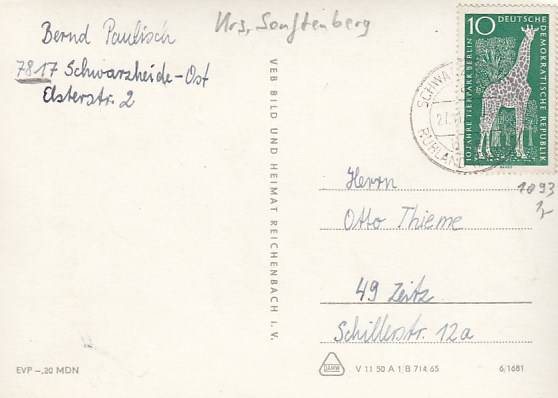 Bernd Paulisch
7817 Schwarzheide-Ost
Elsterstr. 2
Krs, Senftenberg
10 DEUTSCHE
DEMOKRATISCHE REPUBLIK
10 JAHRE TIERPARK BERLIN
SCHWA
RUHLAND
VEB BILD UND HEIMAT REICHENBACH I. V.
Herrn
1093
Otto Thieme
49 Zeitz
Schillerstr. 12a
EVP -,20 MDN
V 11 50 A 1/B 714/65
6/1681